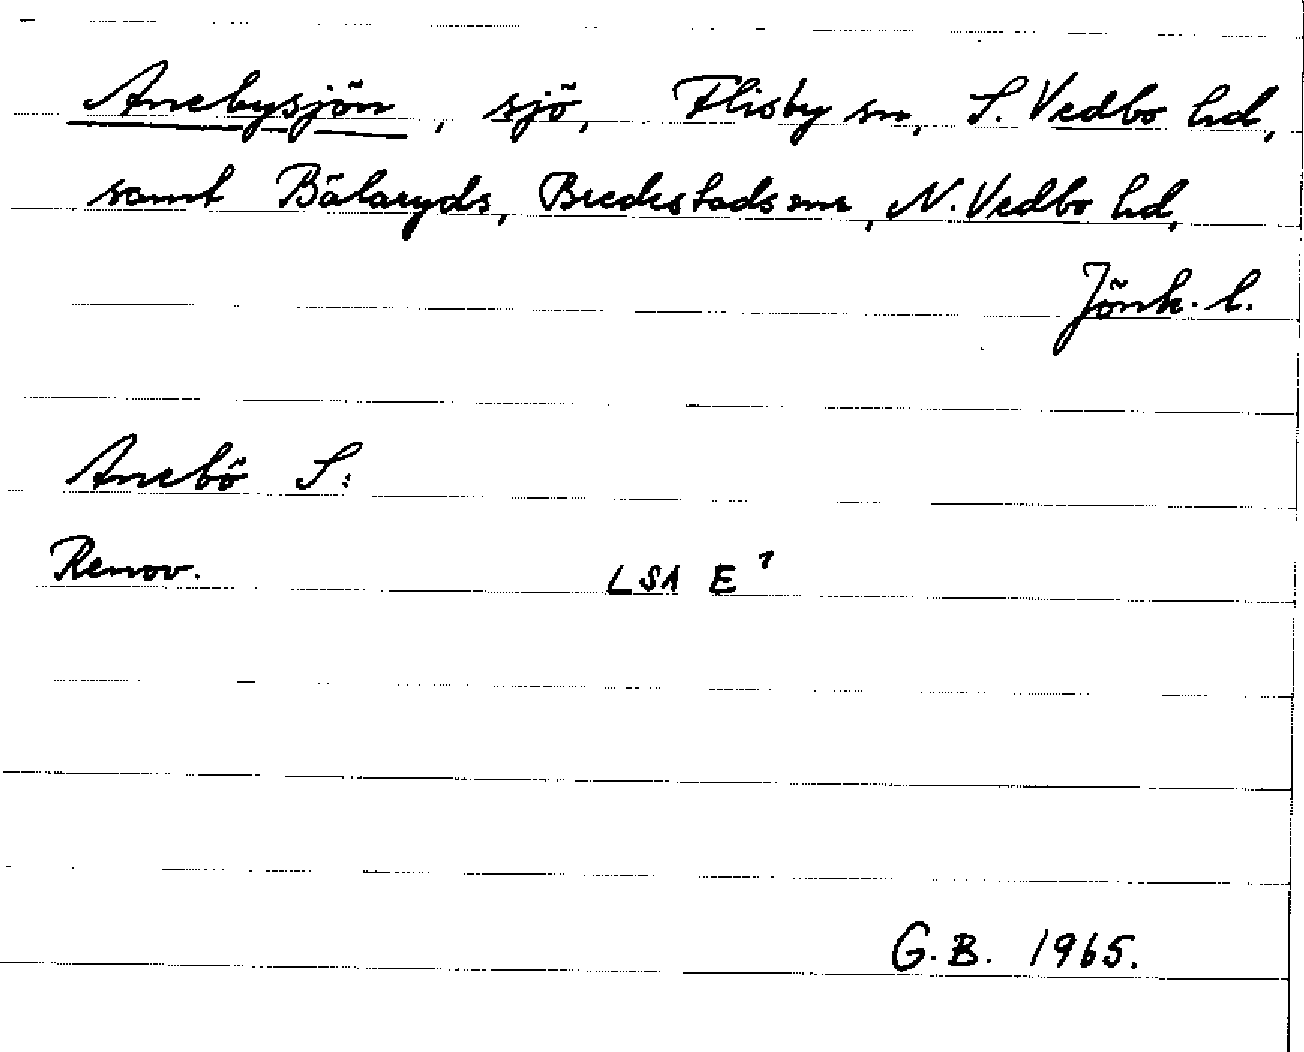 Anebysjön, sjö, Flisby sn, S. Vedbo hd,
samt Bälaryds, Bredestads snr, N. Vedbo hd,
Jönk. l.
Anebö S:
Renov. LSA E¹
G.B. 1965.